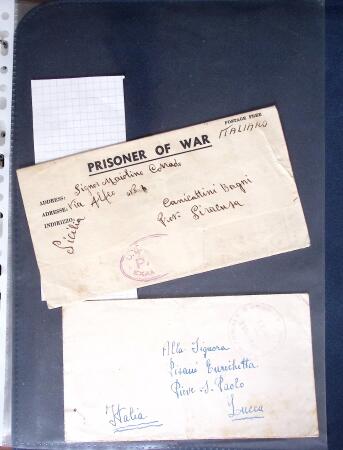 POSTAGE FREE
ITALIANO
PRISONER OF WAR
Signor Maiolino Corrado
ADRESSE: Via Alfeo
ADRESSE: Canicattini Bagni
INDIRIZZO: Prov. Siracusa
Sicilia
P.
EXAM
Alla Signora
Pisani Enrichetta
Pieve S. Paolo
Italia Lucca